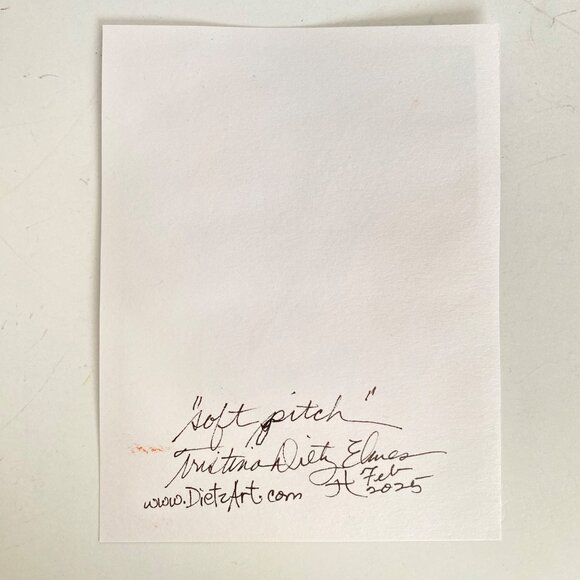 "soft pitch"
Tristina Dietz Elmes
www.DietzArt.com Feb
2025